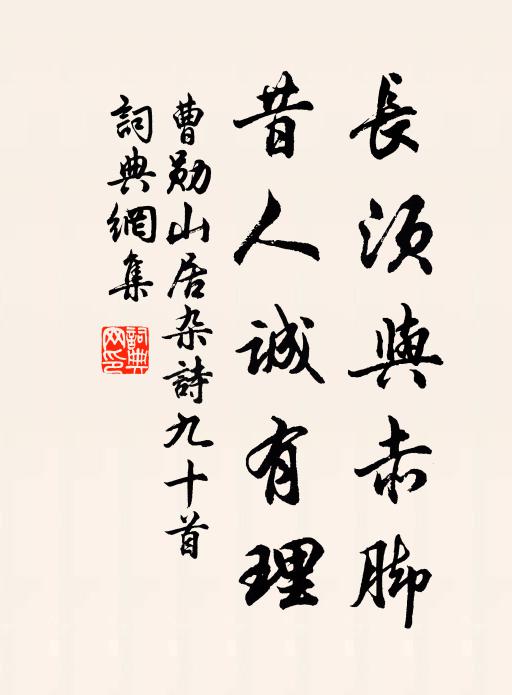 長須與赤脚
昔人誠有理
曹勛山居杂詩九十首
詞典網集
詞典网印